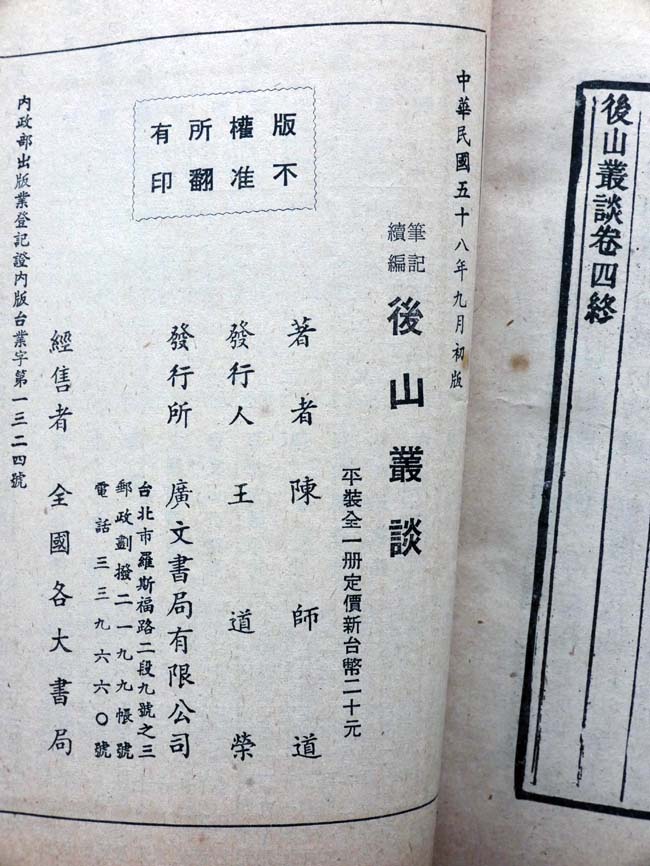 後山叢談卷四終
中華民國五十八年九月初版
筆記續編
後山叢談
平裝全一册定價新台幣二十元
著者陳師道
發行人王道榮
發行所廣文書局有限公司
台北市羅斯福路二段九號之三
郵政劃撥二一九九帳號
電話三三九六六〇號
經售者全國各大書局
版權所有
不准翻印
內政部出版業登記證內版台業字第一三二四號